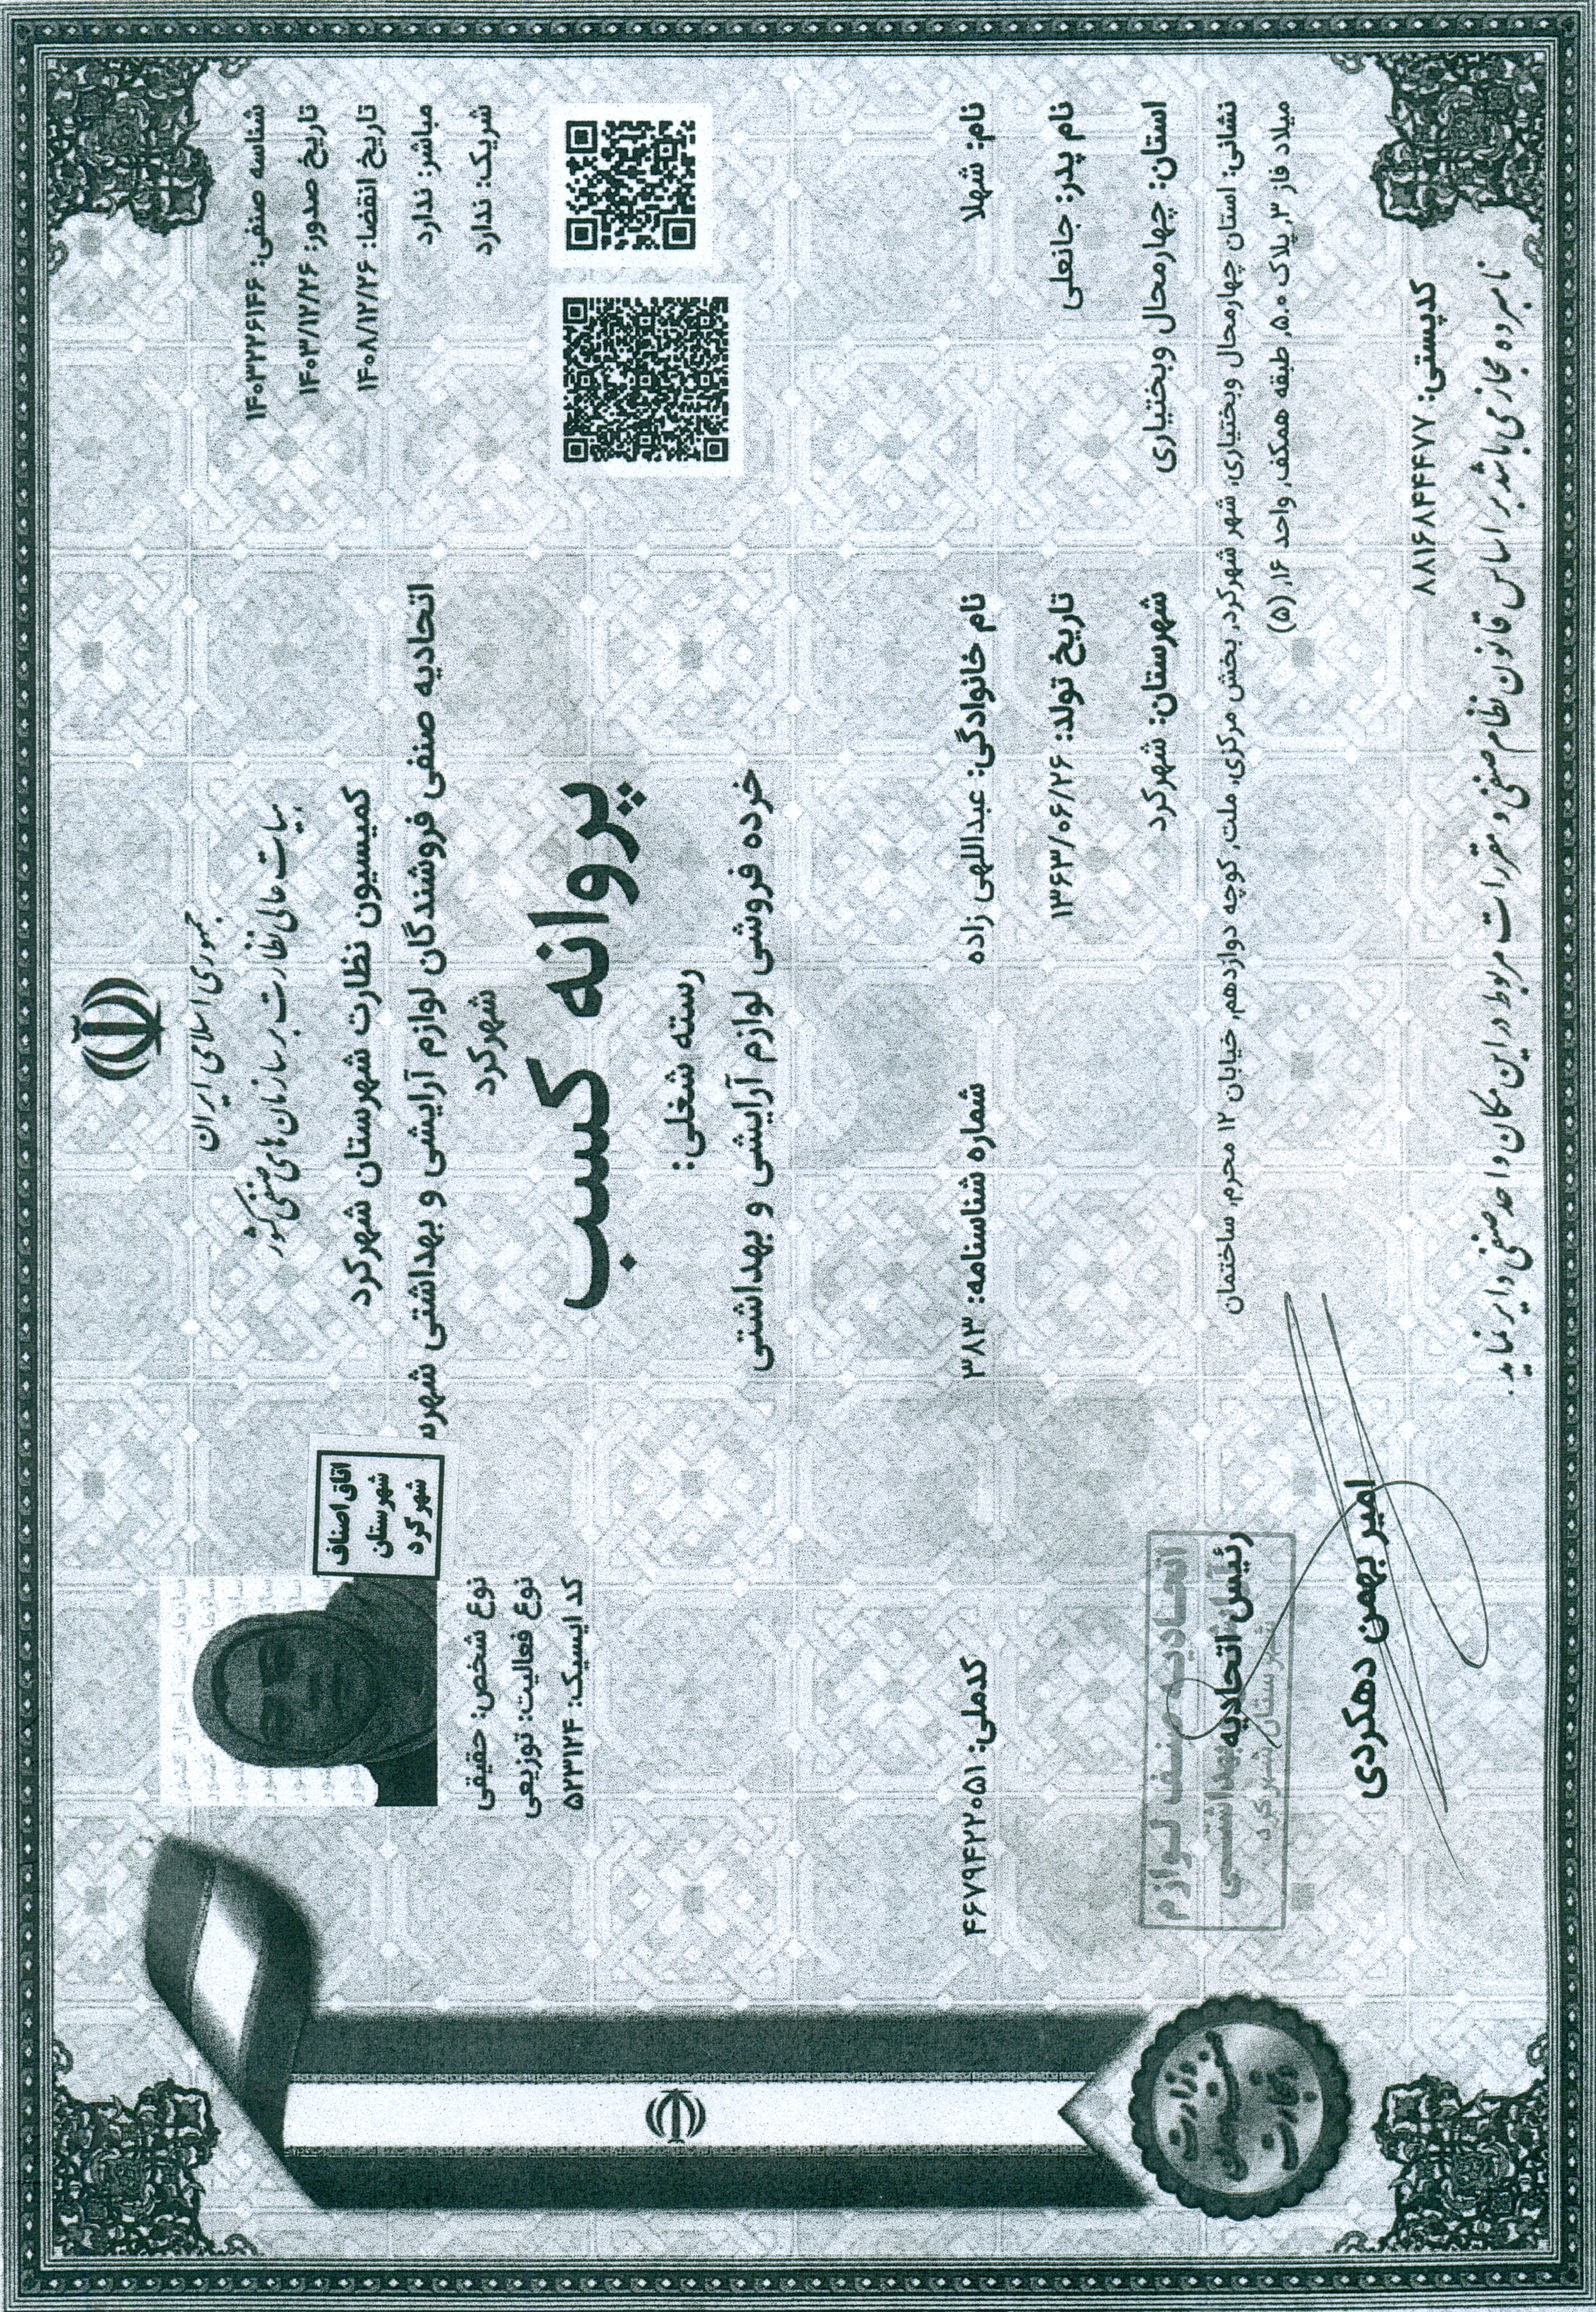 جمهوری اسلامی ایران
هیات عالی نظارت بر سازمان های صنفی کشور
کمیسیون نظارت شهرستان شهرکرد
اتحادیه صنفی فروشندگان لوازم آرایشی و بهداشتی شهرس
شهرکرد
پروانه کسب
رسته شغلی:
خرده فروشی لوازم آرایشی و بهداشتی
شناسه صنفی: ۱۴۰۳۲۲۶۱۴۶
تاریخ صدور: ۱۴۰۳/۱۲/۲۶
تاریخ انقضا: ۱۴۰۸/۱۲/۲۶
مباشر: ندارد
شریک: ندارد
اتاق اصناف
شهرستان
شهرکرد
نوع شخص: حقیقی
نوع فعالیت: توزیعی
کد آیسیک: ۵۲۳۱۲۴
نام: شهلا نام خانوادگی: عبداللهی زاده شماره شناسنامه: ۳۸۳ کدملی: ۴۶۷۹۴۲۲۰۵۱
نام پدر: جانعلی تاریخ تولد: ۱۳۶۳/۰۶/۲۶
استان: چهارمحال وبختیاری شهرستان: شهرکرد
نشانی: استان چهارمحال وبختیاری, شهر شهرکرد, بخش مرکزی, ملت, کوچه دوازدهم, خیابان ۱۲ محرم, ساختمان
میلاد فاز ۳, پلاک ۵.۰, طبقه همکف, واحد ۱۶, (۵)
کدپستی: ۸۸۱۶۸۴۴۴۷۷
نامبرده مجاز می باشد بر اساس قانون نظام صنفی و مقررات مربوط در این مکان واحد صنفی دایر نماید.
اتحادیه صنف لوازم
بهداشتی
شهرستان شهرکرد
رئیس اتحادیه
امیر بهمن دهکردی
وزارت
صنعت معدن
و تجارت